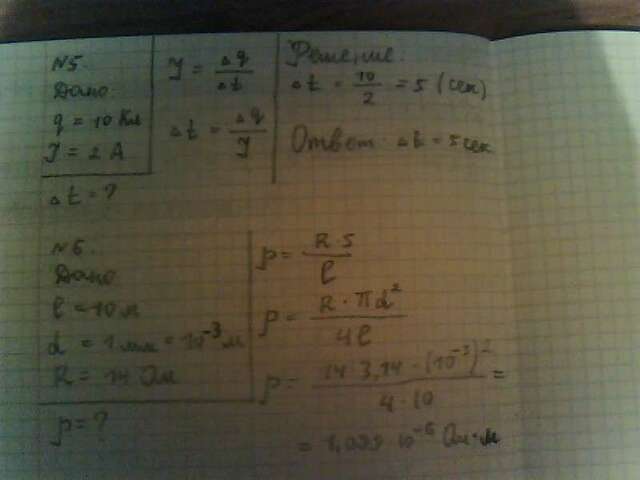 N5.
Дано:
q = 10 Кл
I = 2 А
Δt = ?
I = Δq/Δt
Δt = Δq/I
Решение:
Δt = 10/2 = 5 (сек)
Ответ: Δt = 5 сек
N6.
Дано
l = 10 м
d = 1 мм = 10⁻³ м
R = 14 Ом
ρ = ?
ρ = R·S/l
ρ = R·πd²/4l
ρ = 14·3,14·(10⁻³)²/4·10 =
= 1,099·10⁻⁶ Ом·м